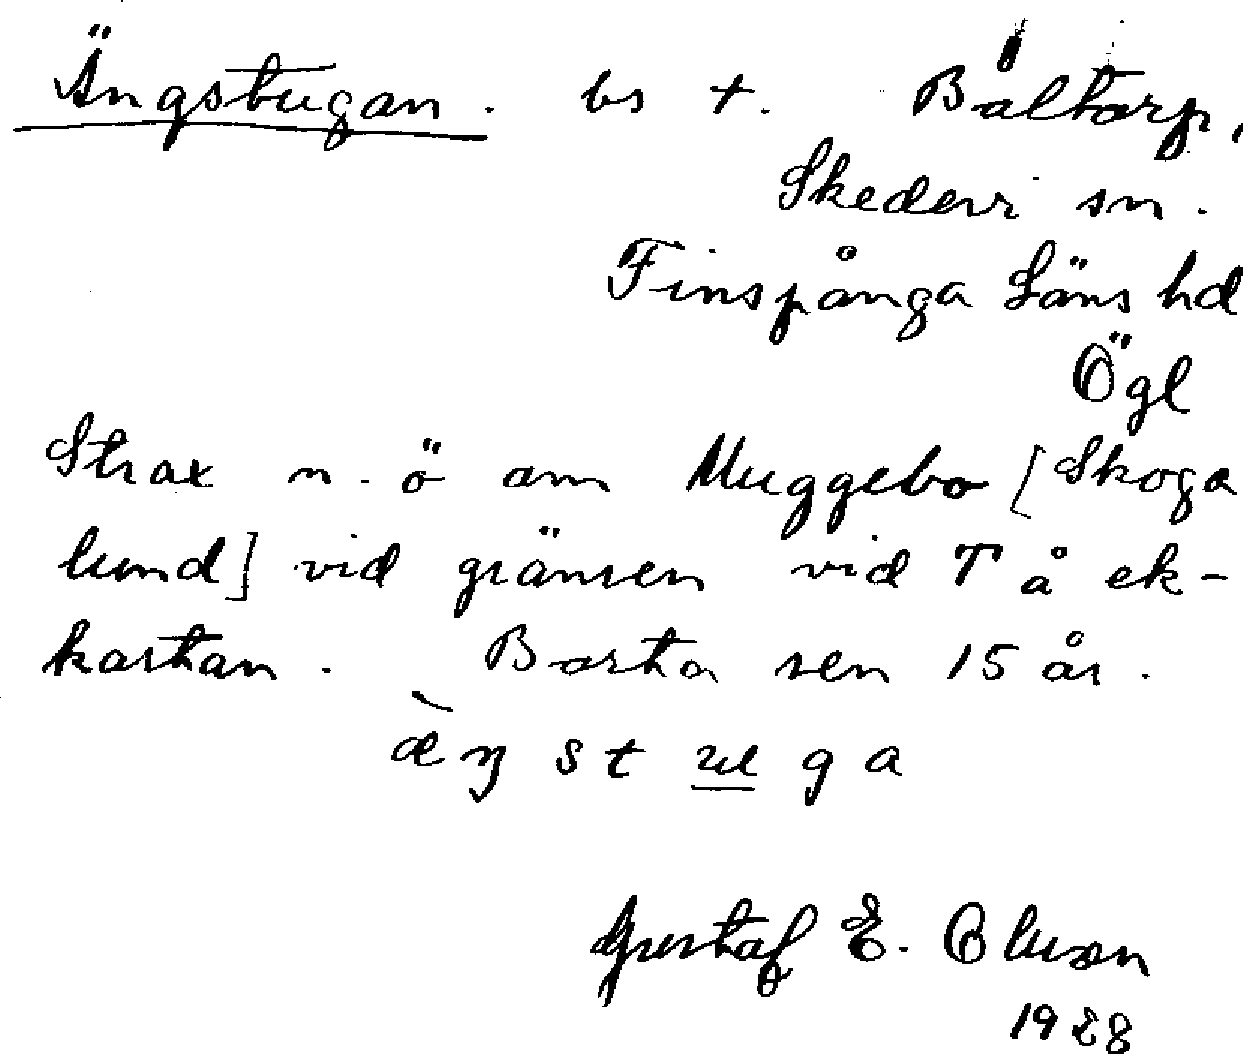 Ängstugan. bs t. Bältorp,
Skedevi sn.
Finspånga Läns hd
Ögl
Strax n. ö om Muggebo [Skoga
lund] vid gränsen vid T å ek-
kartan. Borta sen 15 år.
æ̀ŋ s t u g a
Gustaf E. Oluson
1928